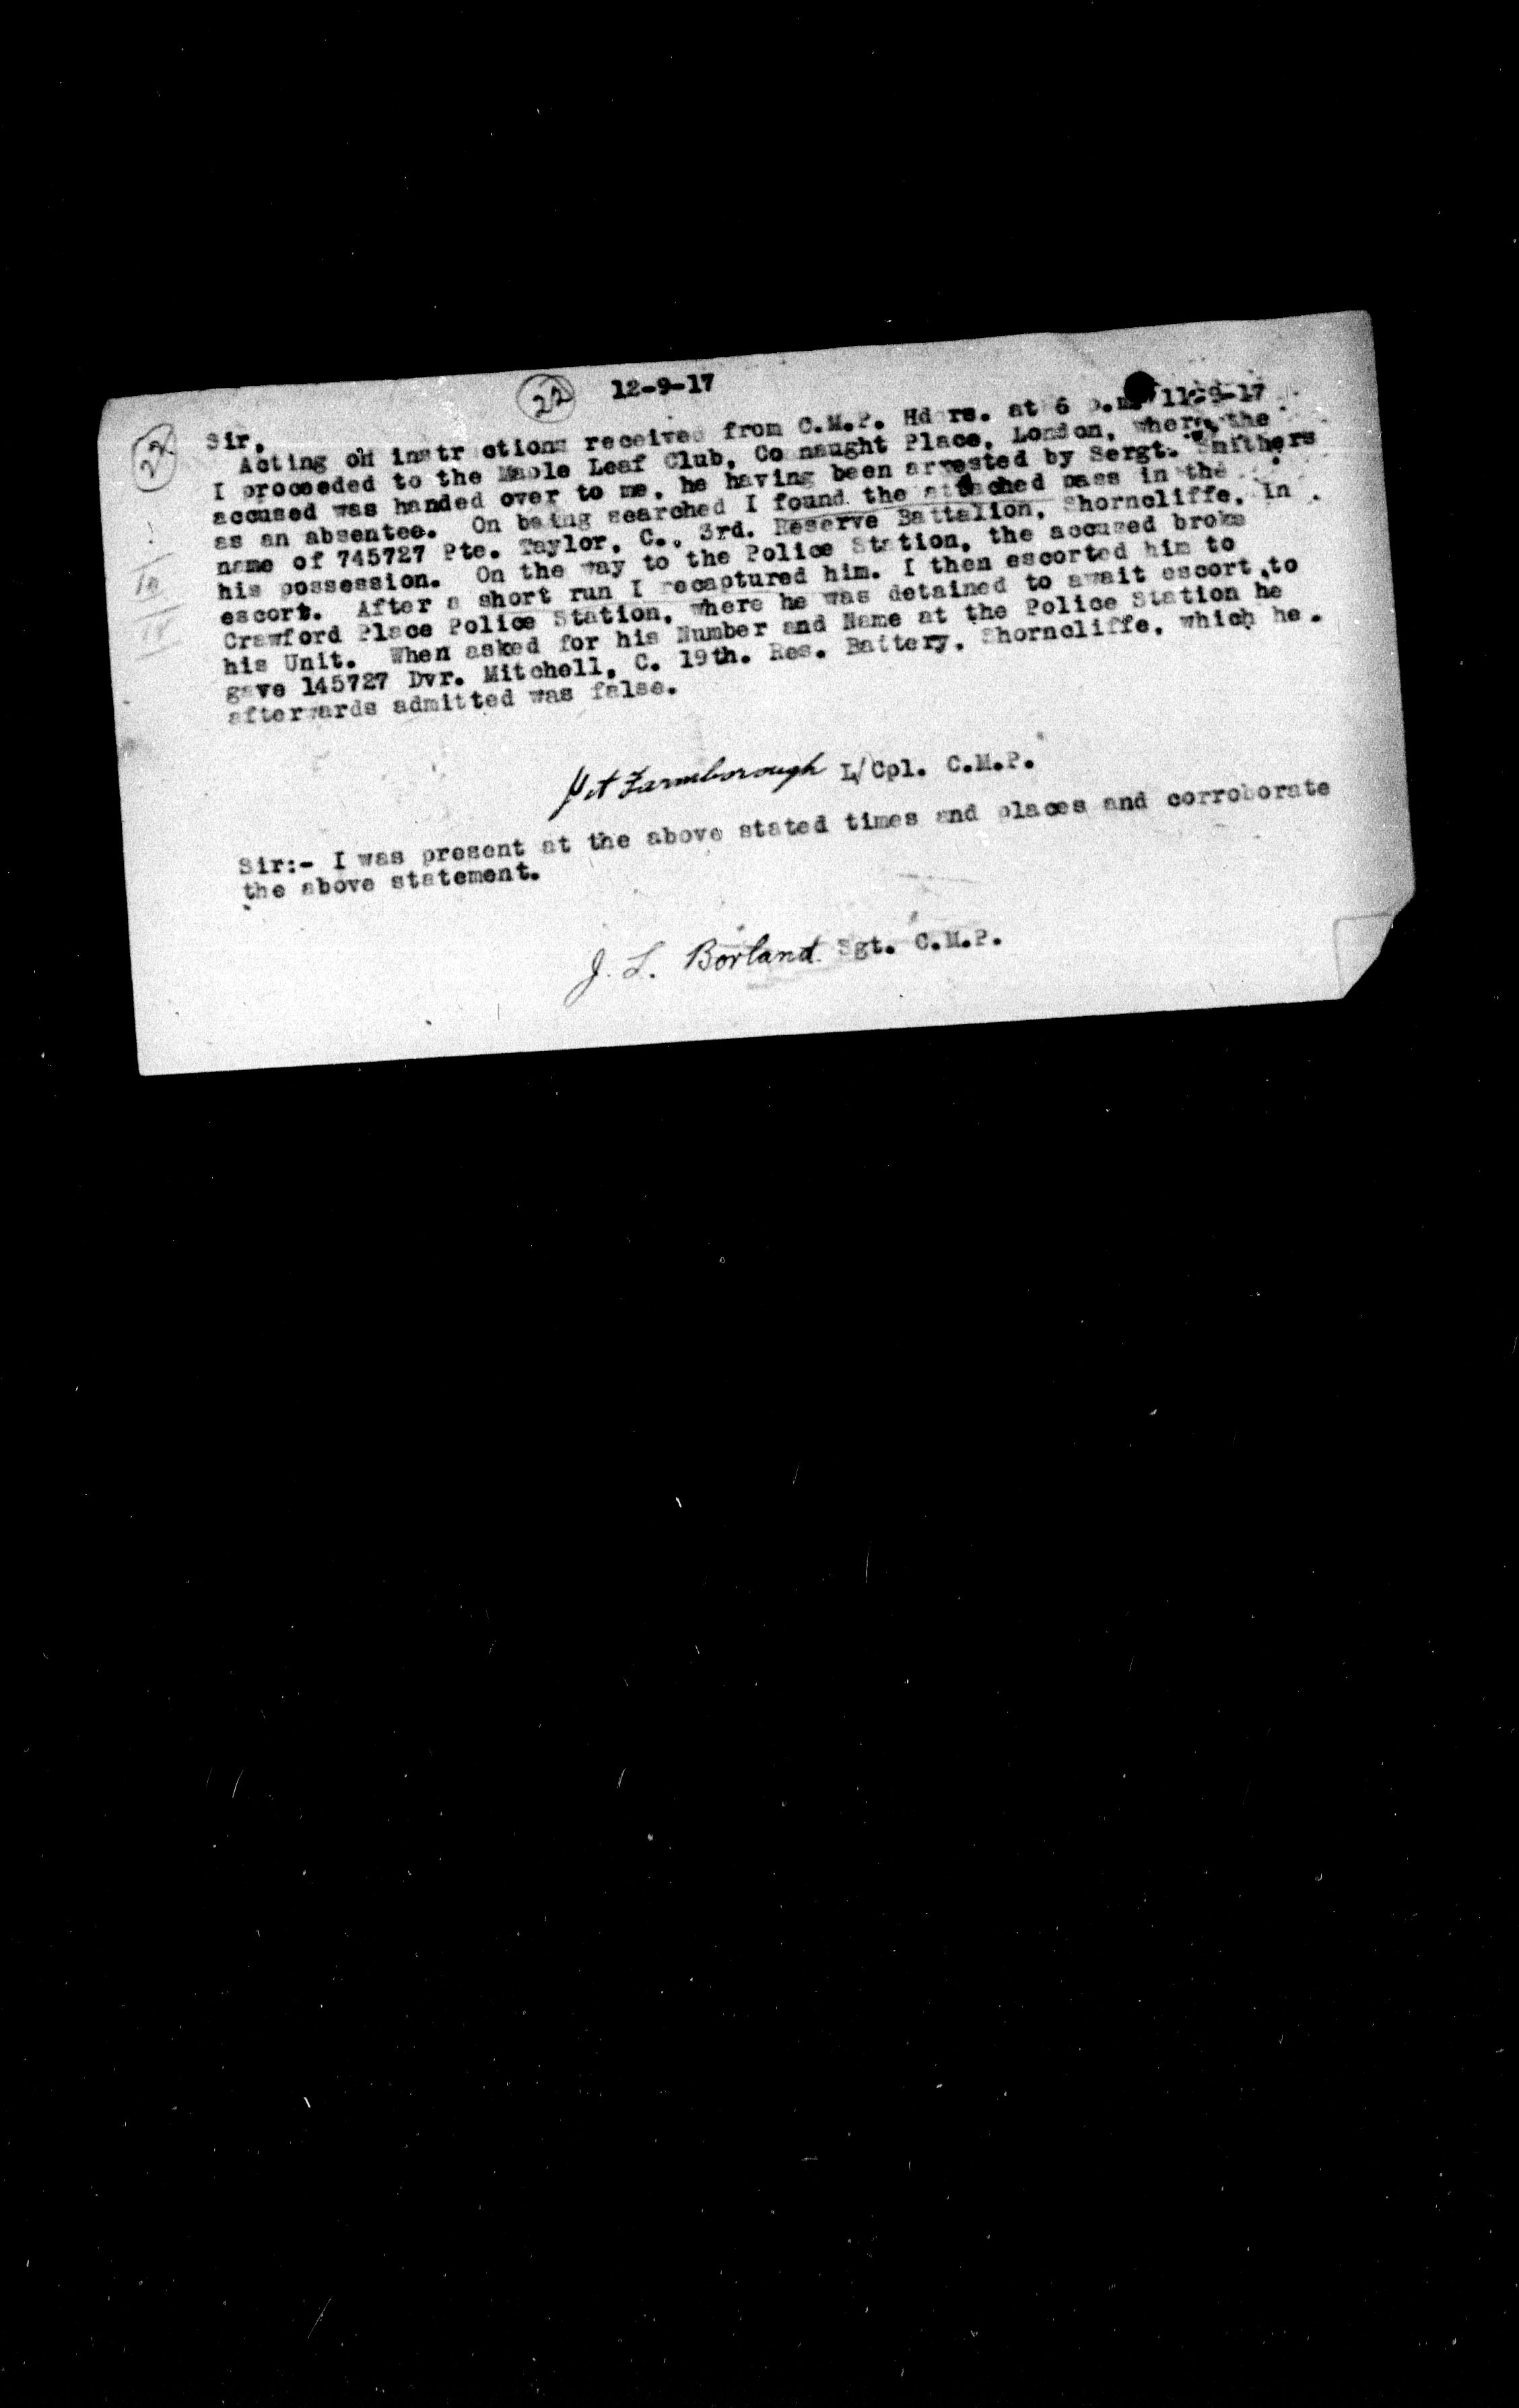 22 12-9-17
22
Sir,
Acting on instructions received from C.M.P. Hdqrs. at 6 p.m. 11-9-17
I proceeded to the Maple Leaf Club, Connaught Place, London, where the
accused was handed over to me, he having been arrested by Sergt. Smithers
as an absentee. On being searched I found the attached pass in the
name of 745727 Pte. Taylor, C., 3rd. Reserve Battalion, Shorncliffe, in
his possession. On the way to the Police Station, the accused broke
escort. After a short run I recaptured him. I then escorted him to
Crawford Place Police Station, where he was detained to await escort to
his Unit. When asked for his Number and Name at the Police Station he
gave 145727 Dvr. Mitchell, C. 19th. Res. Battery, Shorncliffe, which he
afterwards admitted was false.
Farmborough L/Cpl. C.M.P.
Sir:- I was present at the above stated times and places and corroborate
the above statement.
J. L. Borland Sgt. C.M.P.